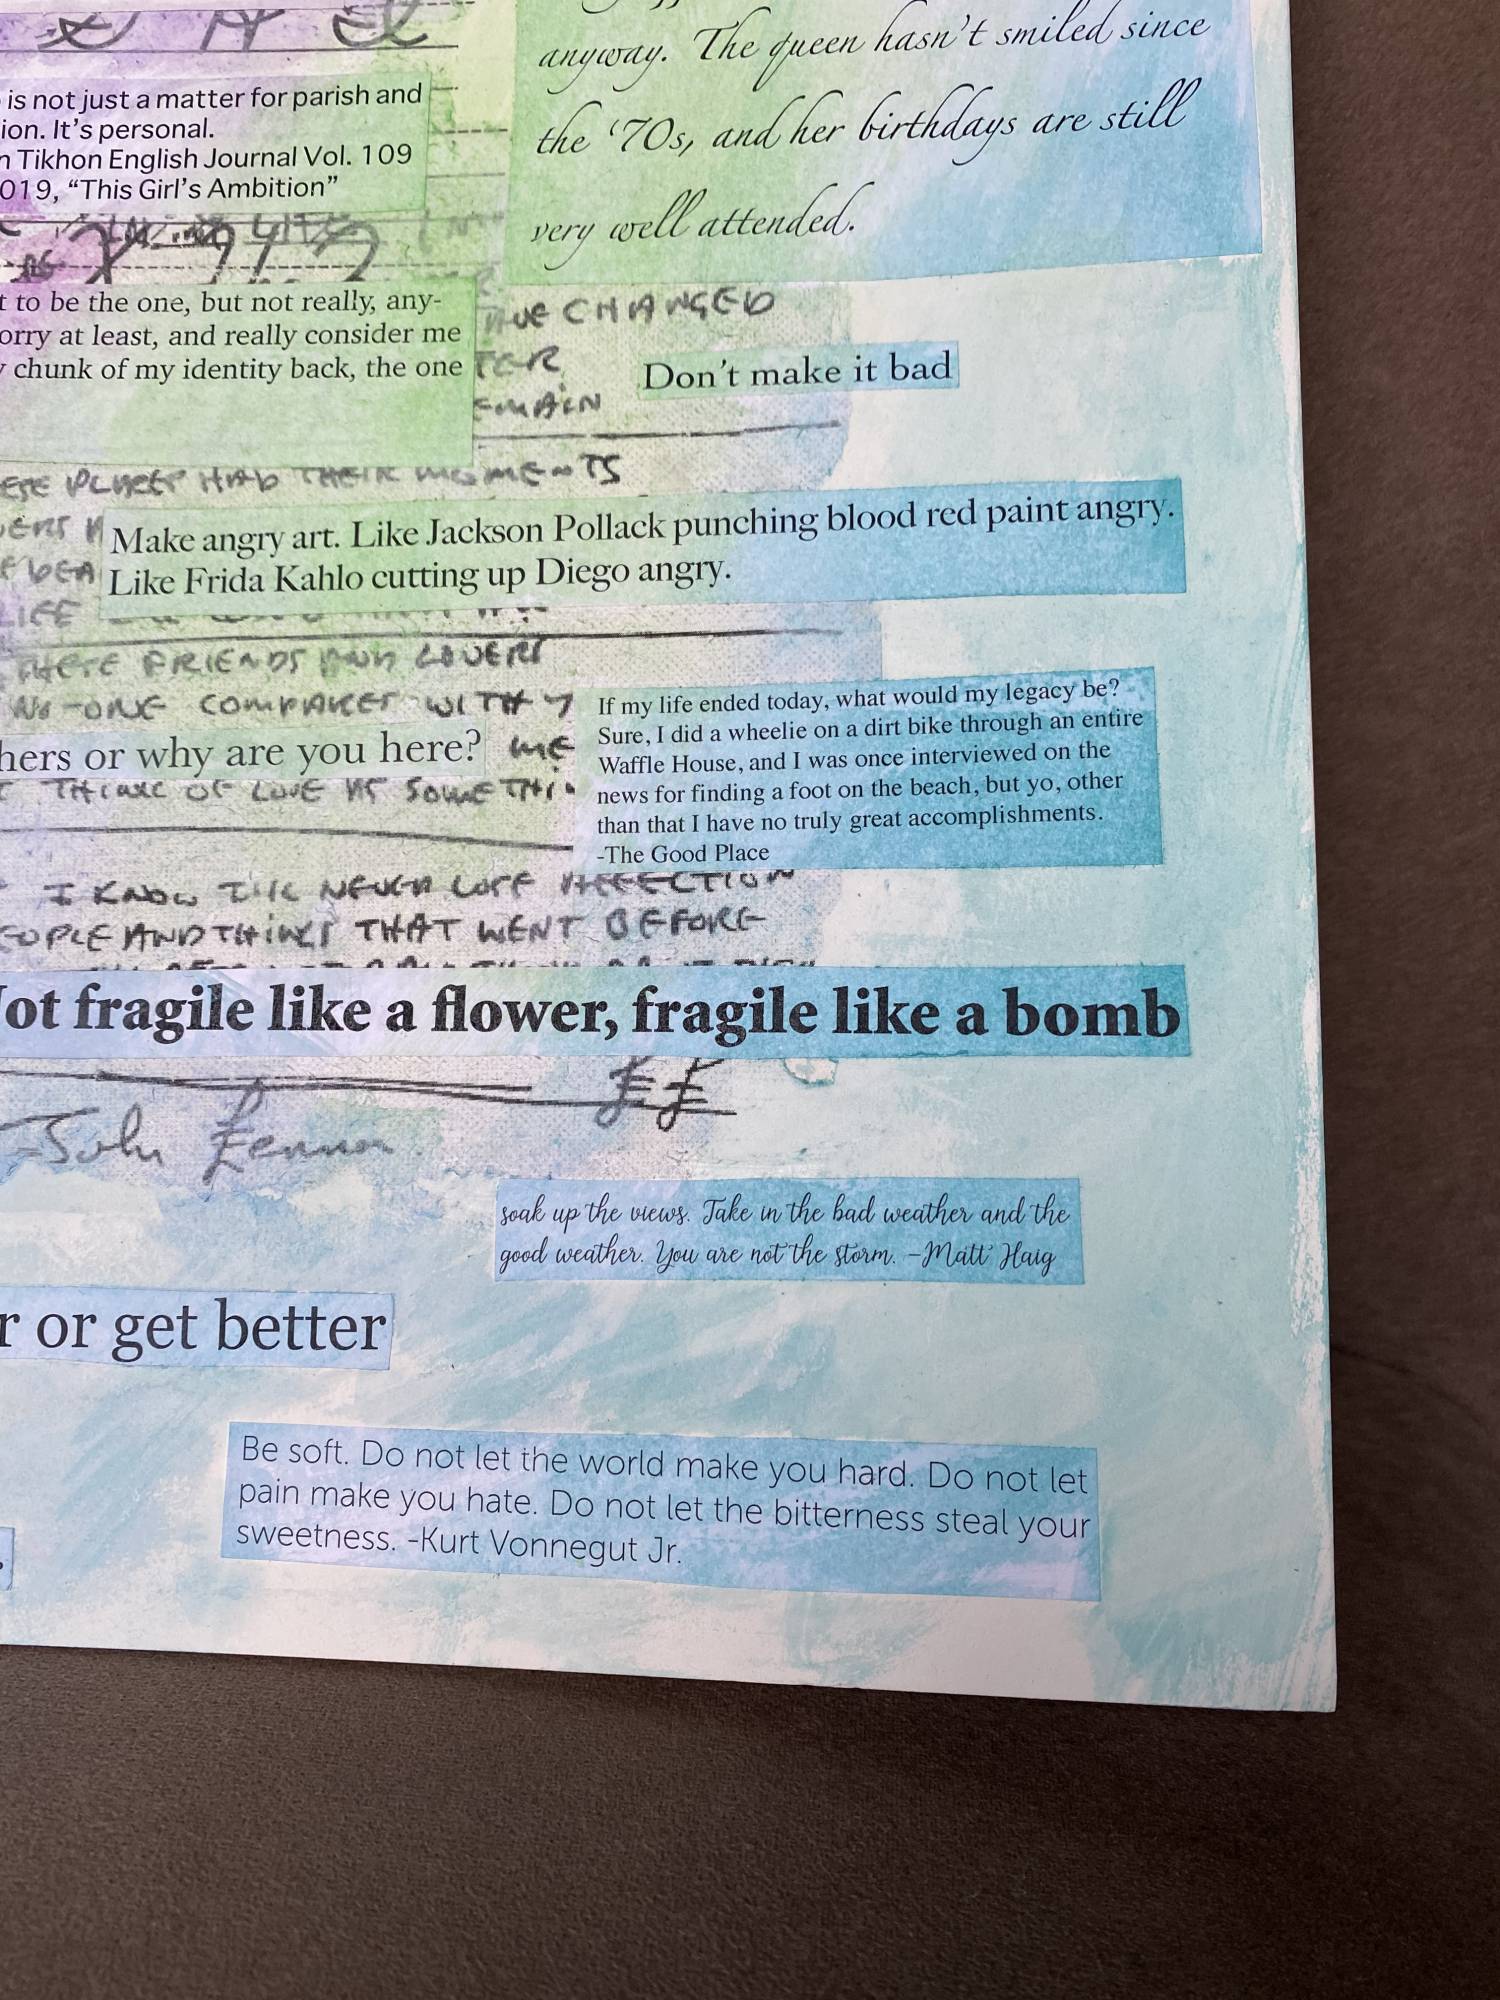 anyway. The queen hasn't smiled since
the '70s, and her birthdays are still
very well attended.
is not just a matter for parish and
ion. It's personal.
n Tikhon English Journal Vol. 109
019, "This Girl's Ambition"
t to be the one, but not really, any-
orry at least, and really consider me
y chunk of my identity back, the one
CHANGED
Don't make it bad
EMAIN
HAD THEIR MOMENTS
Make angry art. Like Jackson Pollack punching blood red paint angry.
Like Frida Kahlo cutting up Diego angry.
LIFE
THESE FRIENDS AND LOVERS
NO-ONE COMPARES WITH Y
If my life ended today, what would my legacy be?
Sure, I did a wheelie on a dirt bike through an entire
Waffle House, and I was once interviewed on the
news for finding a foot on the beach, but yo, other
than that I have no truly great accomplishments.
-The Good Place
hers or why are you here?
THINK OF LOVE AS SOMETHIN
I KNOW I'LL NEVER LOSE AFFECTION
EOPLE AND THINGS THAT WENT BEFORE
ot fragile like a flower, fragile like a bomb
John Lennon
soak up the views. Take in the bad weather and the
good weather. You are not the storm. -Matt Haig
r or get better
Be soft. Do not let the world make you hard. Do not let
pain make you hate. Do not let the bitterness steal your
sweetness. -Kurt Vonnegut Jr.